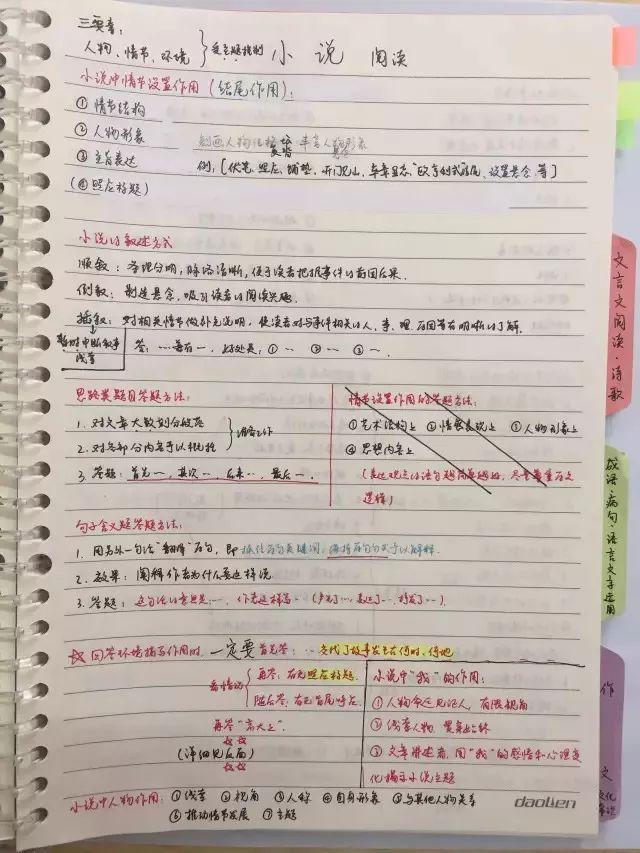 三要素:
人物、情节、环境 } 受主题控制 小说 阅读
小说中情节设置作用(结尾作用):
① 情节结构
② 人物形象 刻画人物性格 丰富人物形象
③ 主旨表达 例:[伏笔、照应、铺垫、开门见山、卒章显志、"欧·亨利式"结尾、设置悬念 等]
(④ 照应标题)
小说的叙述方式
顺叙:条理分明,脉络清晰,便于读者把握事件的前因后果.
倒叙:制造悬念,吸引读者的阅读兴趣.
插叙:对相关情节做补充说明,使读者对与事件相关的人、事、理、有因等有明晰的了解.
暂时中断叙事
线索
答:…着有一,好处是:①… ②… ③…
思路类题目答题方法:
1. 对文章大致划分段落
2. 对各部分内容予以概括
} 准备工作
3. 答题:首先…,其次…,后来…,最后….
情节设置作用的答题方法:
① 艺术结构上 ② 情感表现上 ③ 人物形象上
④ 思想内容上
选择)
句子含义题答题方法:
1. 用另外一句话"翻译"原句,即抓住原句关键词,
2. 效果:阐释作者为什么要这样说
3. 答题:这句话的意思是…,作者这样写…(
☆ 回答环境描写作用时,一定要首先答:…交代了故事发生在何时、何地
看情况 {
再答,有无照应标题.
随后答,有无首尾呼应.
再答"高大上".
☆☆
(详细见反面)
☆☆
小说中"我"的作用:
① 人物命运见证人,有限视角
② 线索人物,贯串始终
③ 文章讲述者,用"我"的感情和心理变
化揭示小说主题
小说中人物作用:① 线索 ② 视角 ③ 人称 ④ 自身形象 ⑤ 与其他人物关系
⑥ 推动情节发展 ⑦ 主题
daolien
文言文阅读·诗歌
成语·病句·语言文字运用
作
文